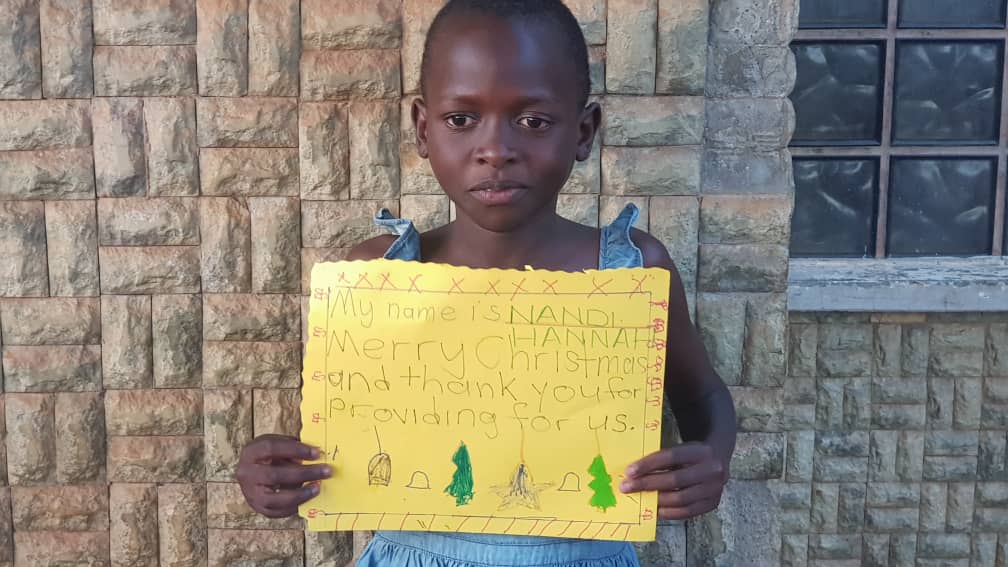 My name is NANDI.
HANNAH
Merry Christmas
and thank you for
Providing for us.